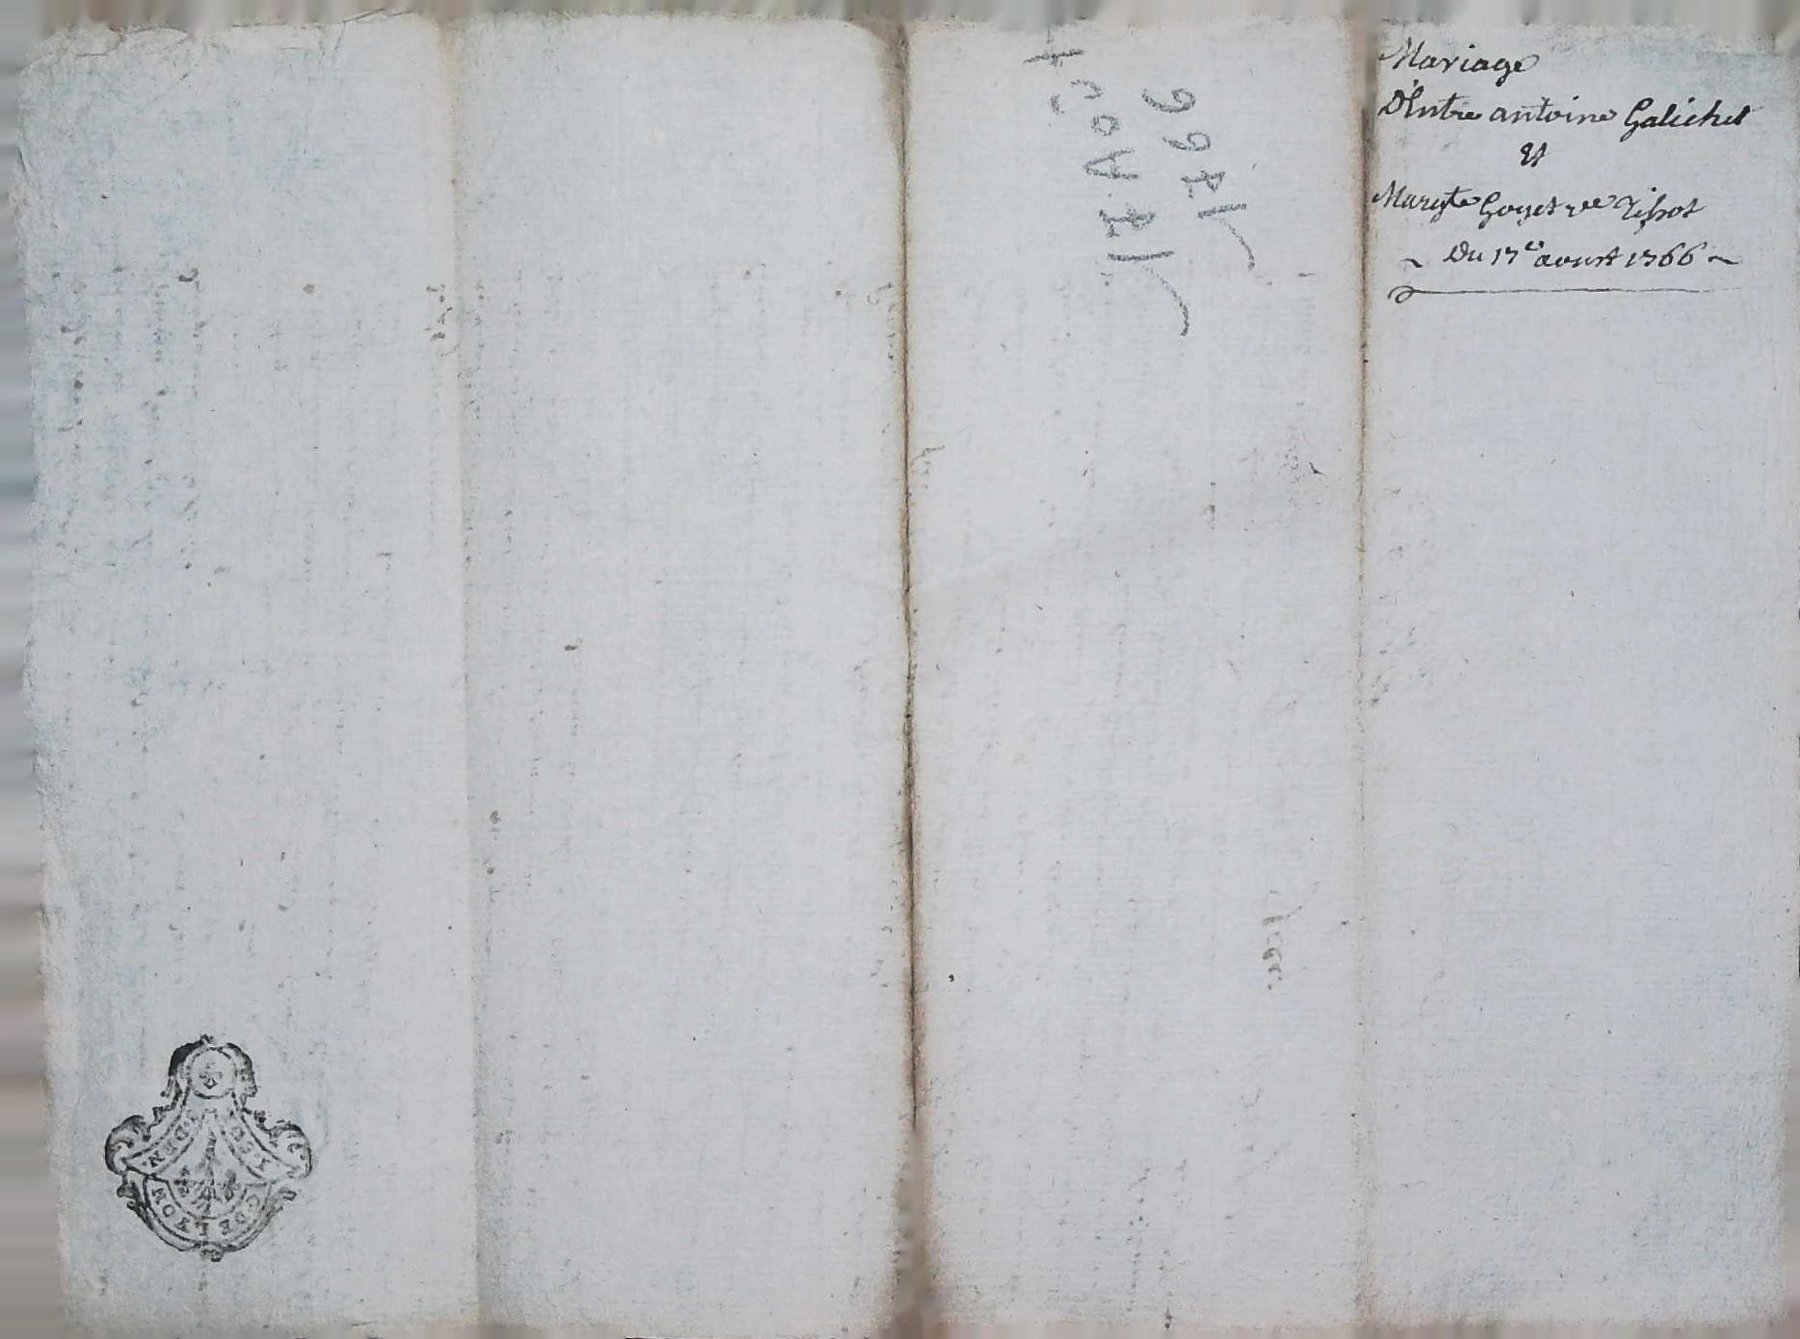 Mariage
D'Entre antoine Galichet
Et
Margte Goyet vve Tissot
Du 17e avust 1766
1766
17 AOUT
G. DE LYON